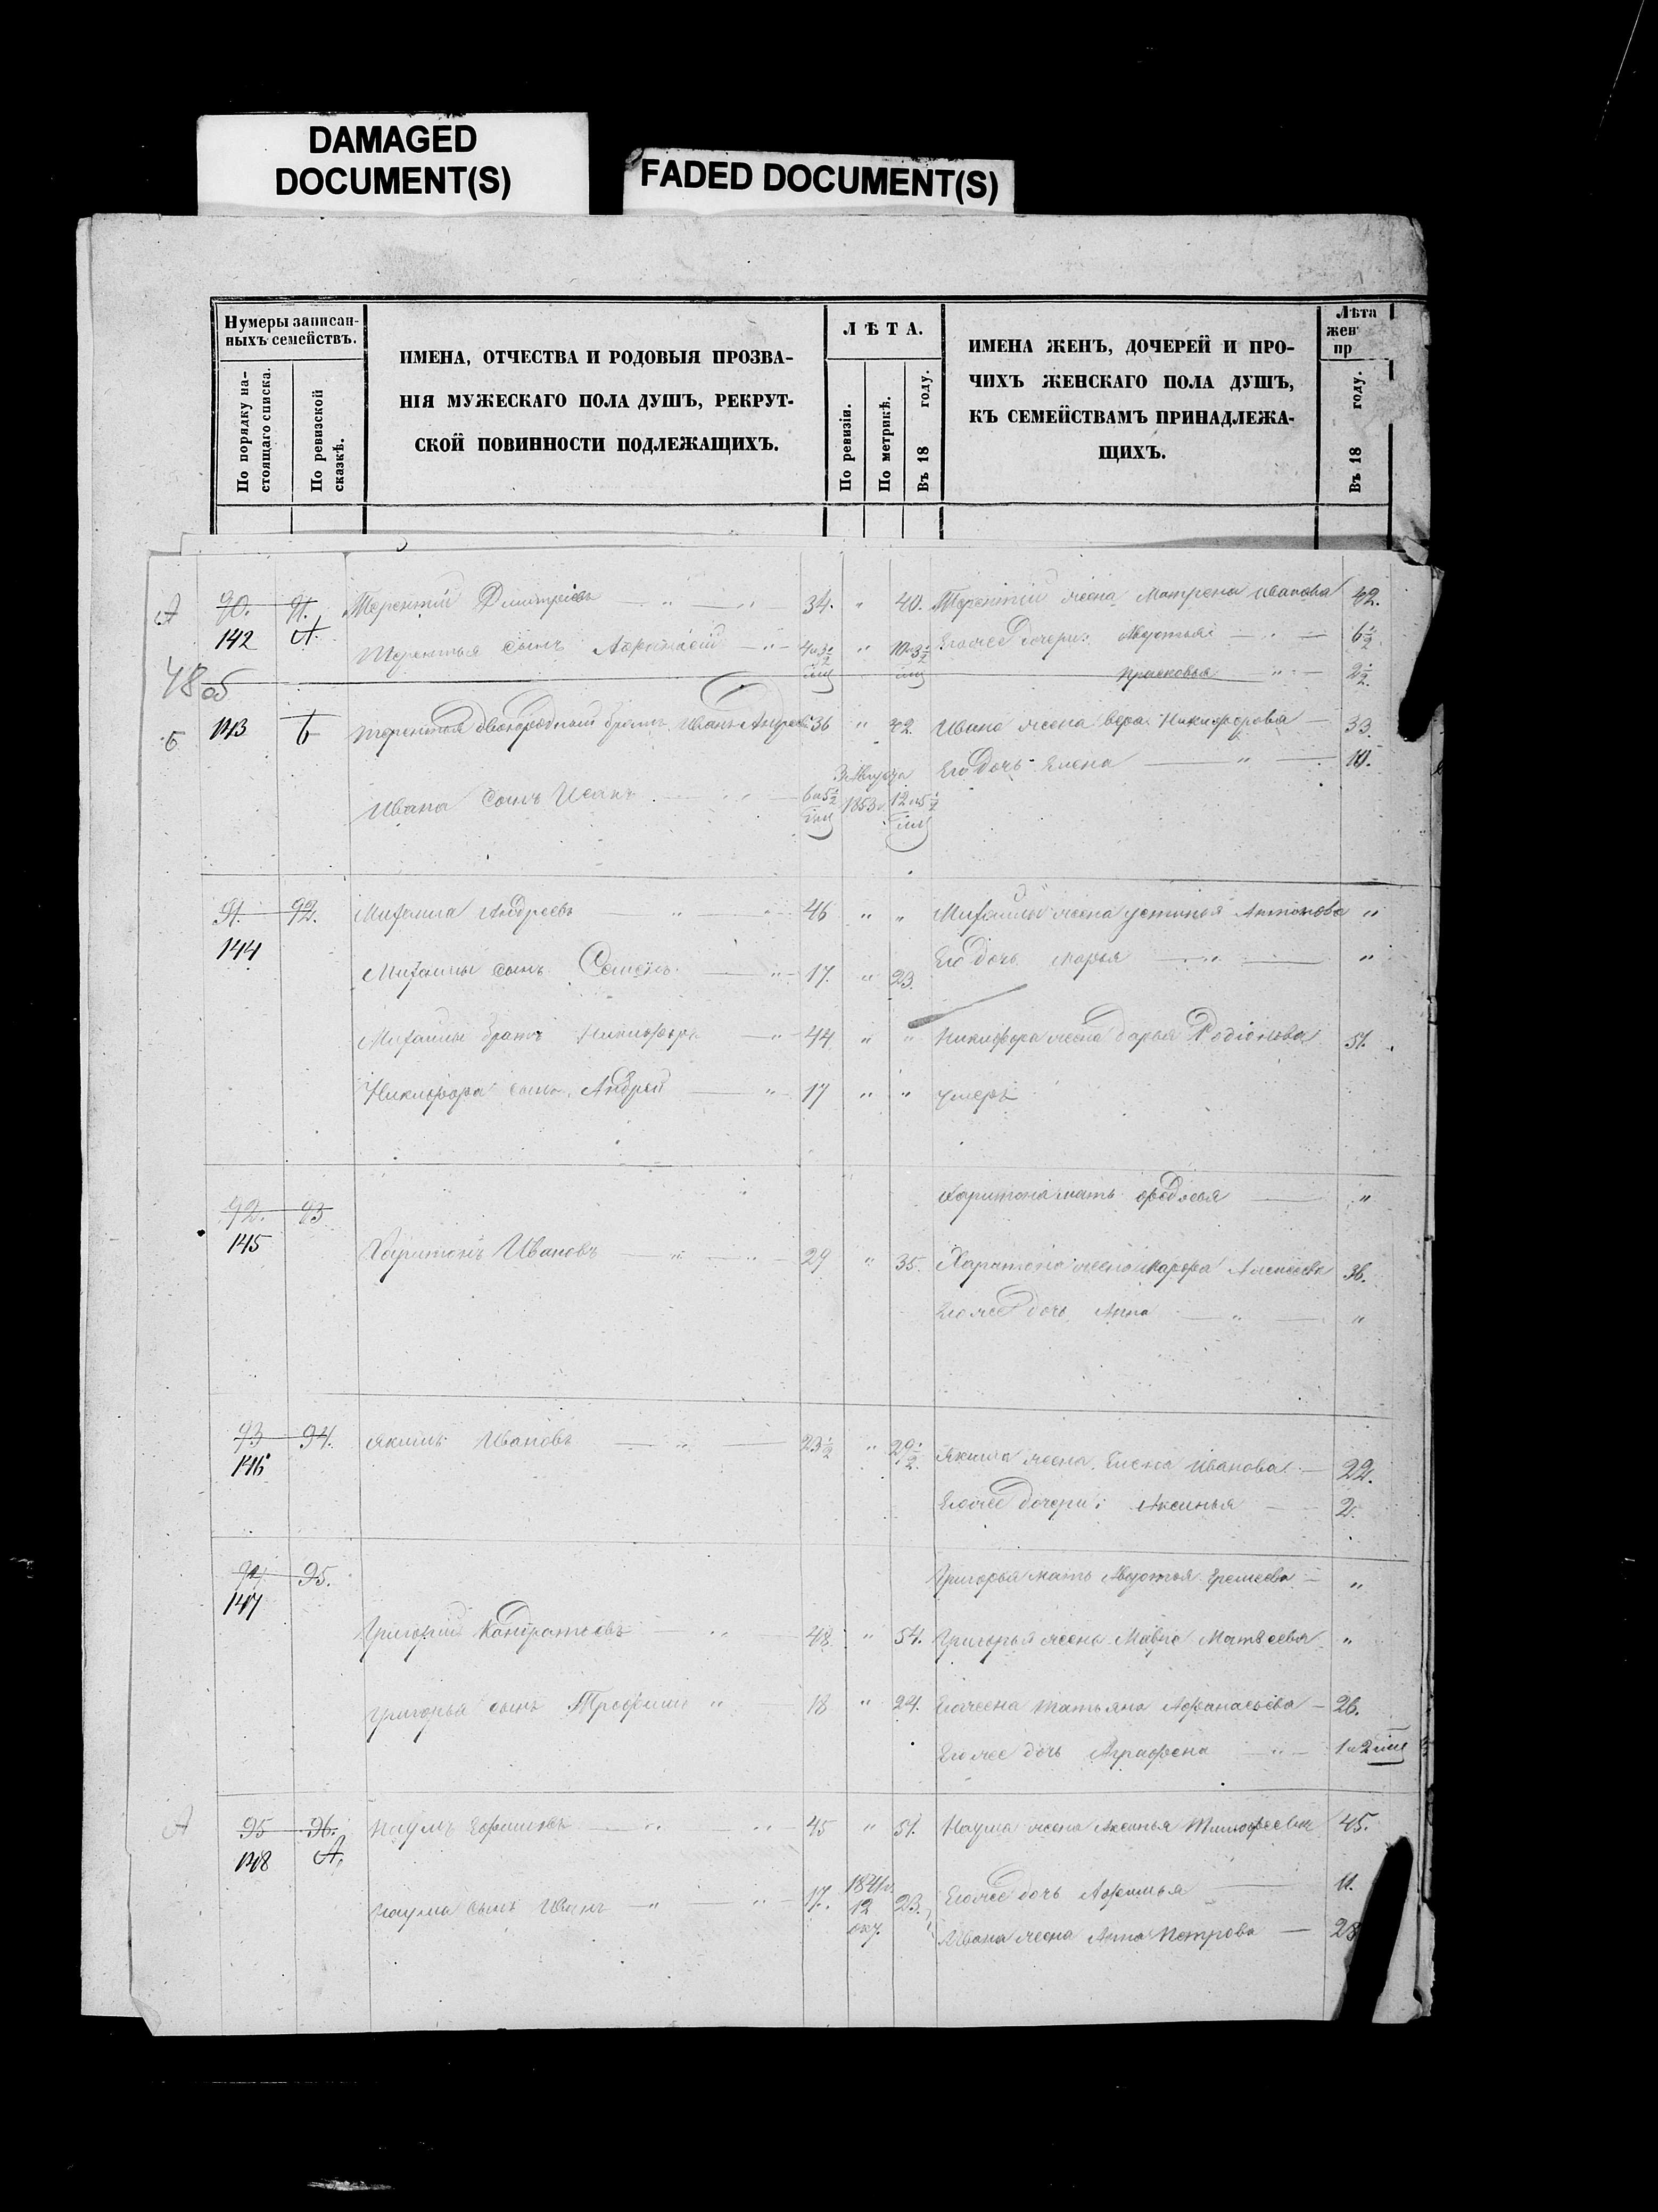 DAMAGED
DOCUMENT(S)
FADED DOCUMENT(S)
Нумеры записан-
ныхъ семействъ.
По порядку на-
стоящаго списка.
По ревизской
сказкѣ.
ИМЕНА, ОТЧЕСТВА И РОДОВЫЯ ПРОЗВА-
НІЯ МУЖЕСКАГО ПОЛА ДУШЪ, РЕКРУТ-
СКОЙ ПОВИННОСТИ ПОДЛЕЖАЩИХЪ.
ЛѢТА.
По ревизіи.
По метрикѣ.
Въ 18 году.
ИМЕНА ЖЕНЪ, ДОЧЕРЕЙ И ПРО-
ЧИХЪ ЖЕНСКАГО ПОЛА ДУШЪ,
КЪ СЕМЕЙСТВАМЪ ПРИНАДЛЕЖА-
ЩИХЪ.
Лѣта
жен
пр
Въ 18 году.
А 90. 91. Терентій Дмитріевъ 34. " 40. Терентія жена Матрена Иванова 42.
142 А. Терентья сынъ Афонасій " Егожее дочери: Авдотья 6½
48 об Прасковья 2½
Б 143 Б Терентья двоюродный братъ Иванъ Андреевъ 36 " 42. Ивана жена Вера Никифорова 33.
Его дочь Елена " 10.
Ивана сынъ Исакъ 3 Августа 1853
91. 92. Михаила Андреевъ 46 " " Михайлы жена Устинья Антонова "
144
Михайлы сынъ Семенъ 17. " 23. Его дочь Марья "
Михайлы братъ Никифоръ 44 " " Никифора жена Дарья Родіонова 51.
Никифора сынъ Андрей 17 " " умеръ
92. 93 Харитона мать "
145 Харитонъ Ивановъ 29 " 35. Харитона жена Марфа Алексеева 36.
Егожее дочь Анна "
93 94. Якимъ Ивановъ 23½ " 29½
146 Якима жена Елена Иванова 22.
Егожее дочери: Аксинья 2.
94 95. Григорья мать Авдотья Еремеева "
147
Григорій Кондратьевъ 48 " 54. Григорья жена Мавра Матвеева "
Григорья сынъ Трофимъ " 18 " 24. Егожена Татьяна Афанасьева 26.
Егожее дочь Аграфена 1 и 2 м
А 95 96. Наумъ Ефимовъ 45 " 51. Наума жена Аксинья Тимофеева 45.
148 А.
Наума сынъ Иванъ 17. 184 12 окт. 23. Егожее дочь Афимья 11.
Ивана жена Анна Петрова 28